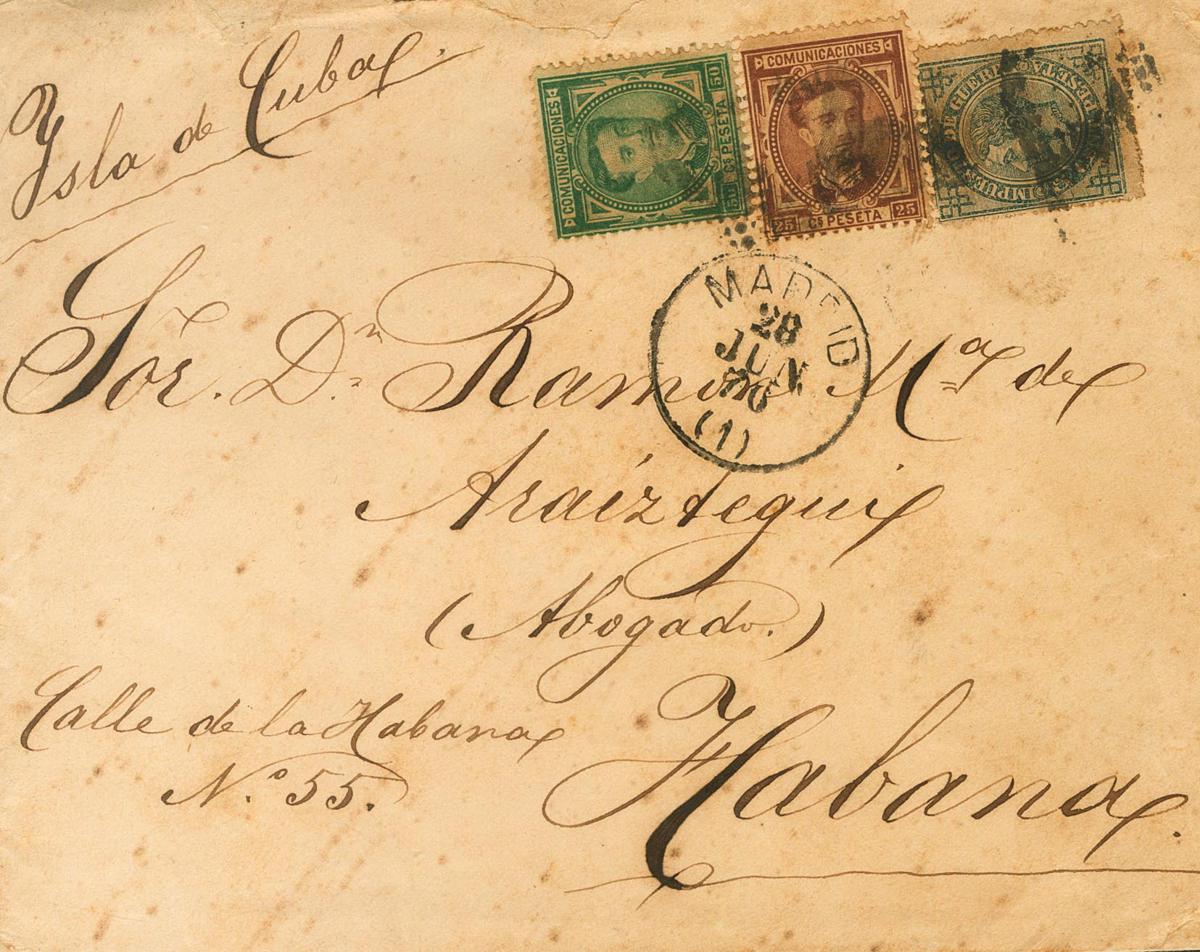 Ysla de Cuba.
COMUNICACIONES
50 Cs PESETA 50
COMUNICACIONES
25 Cs PESETA 25
DE GUERRA
IMPUESTO
MADRID
28
JUN
76
(1)
Sor. Dn Ramon Ma de
Araíztegui
(Abogado.)
Calle de la Habana
N.o 55.
Habana.